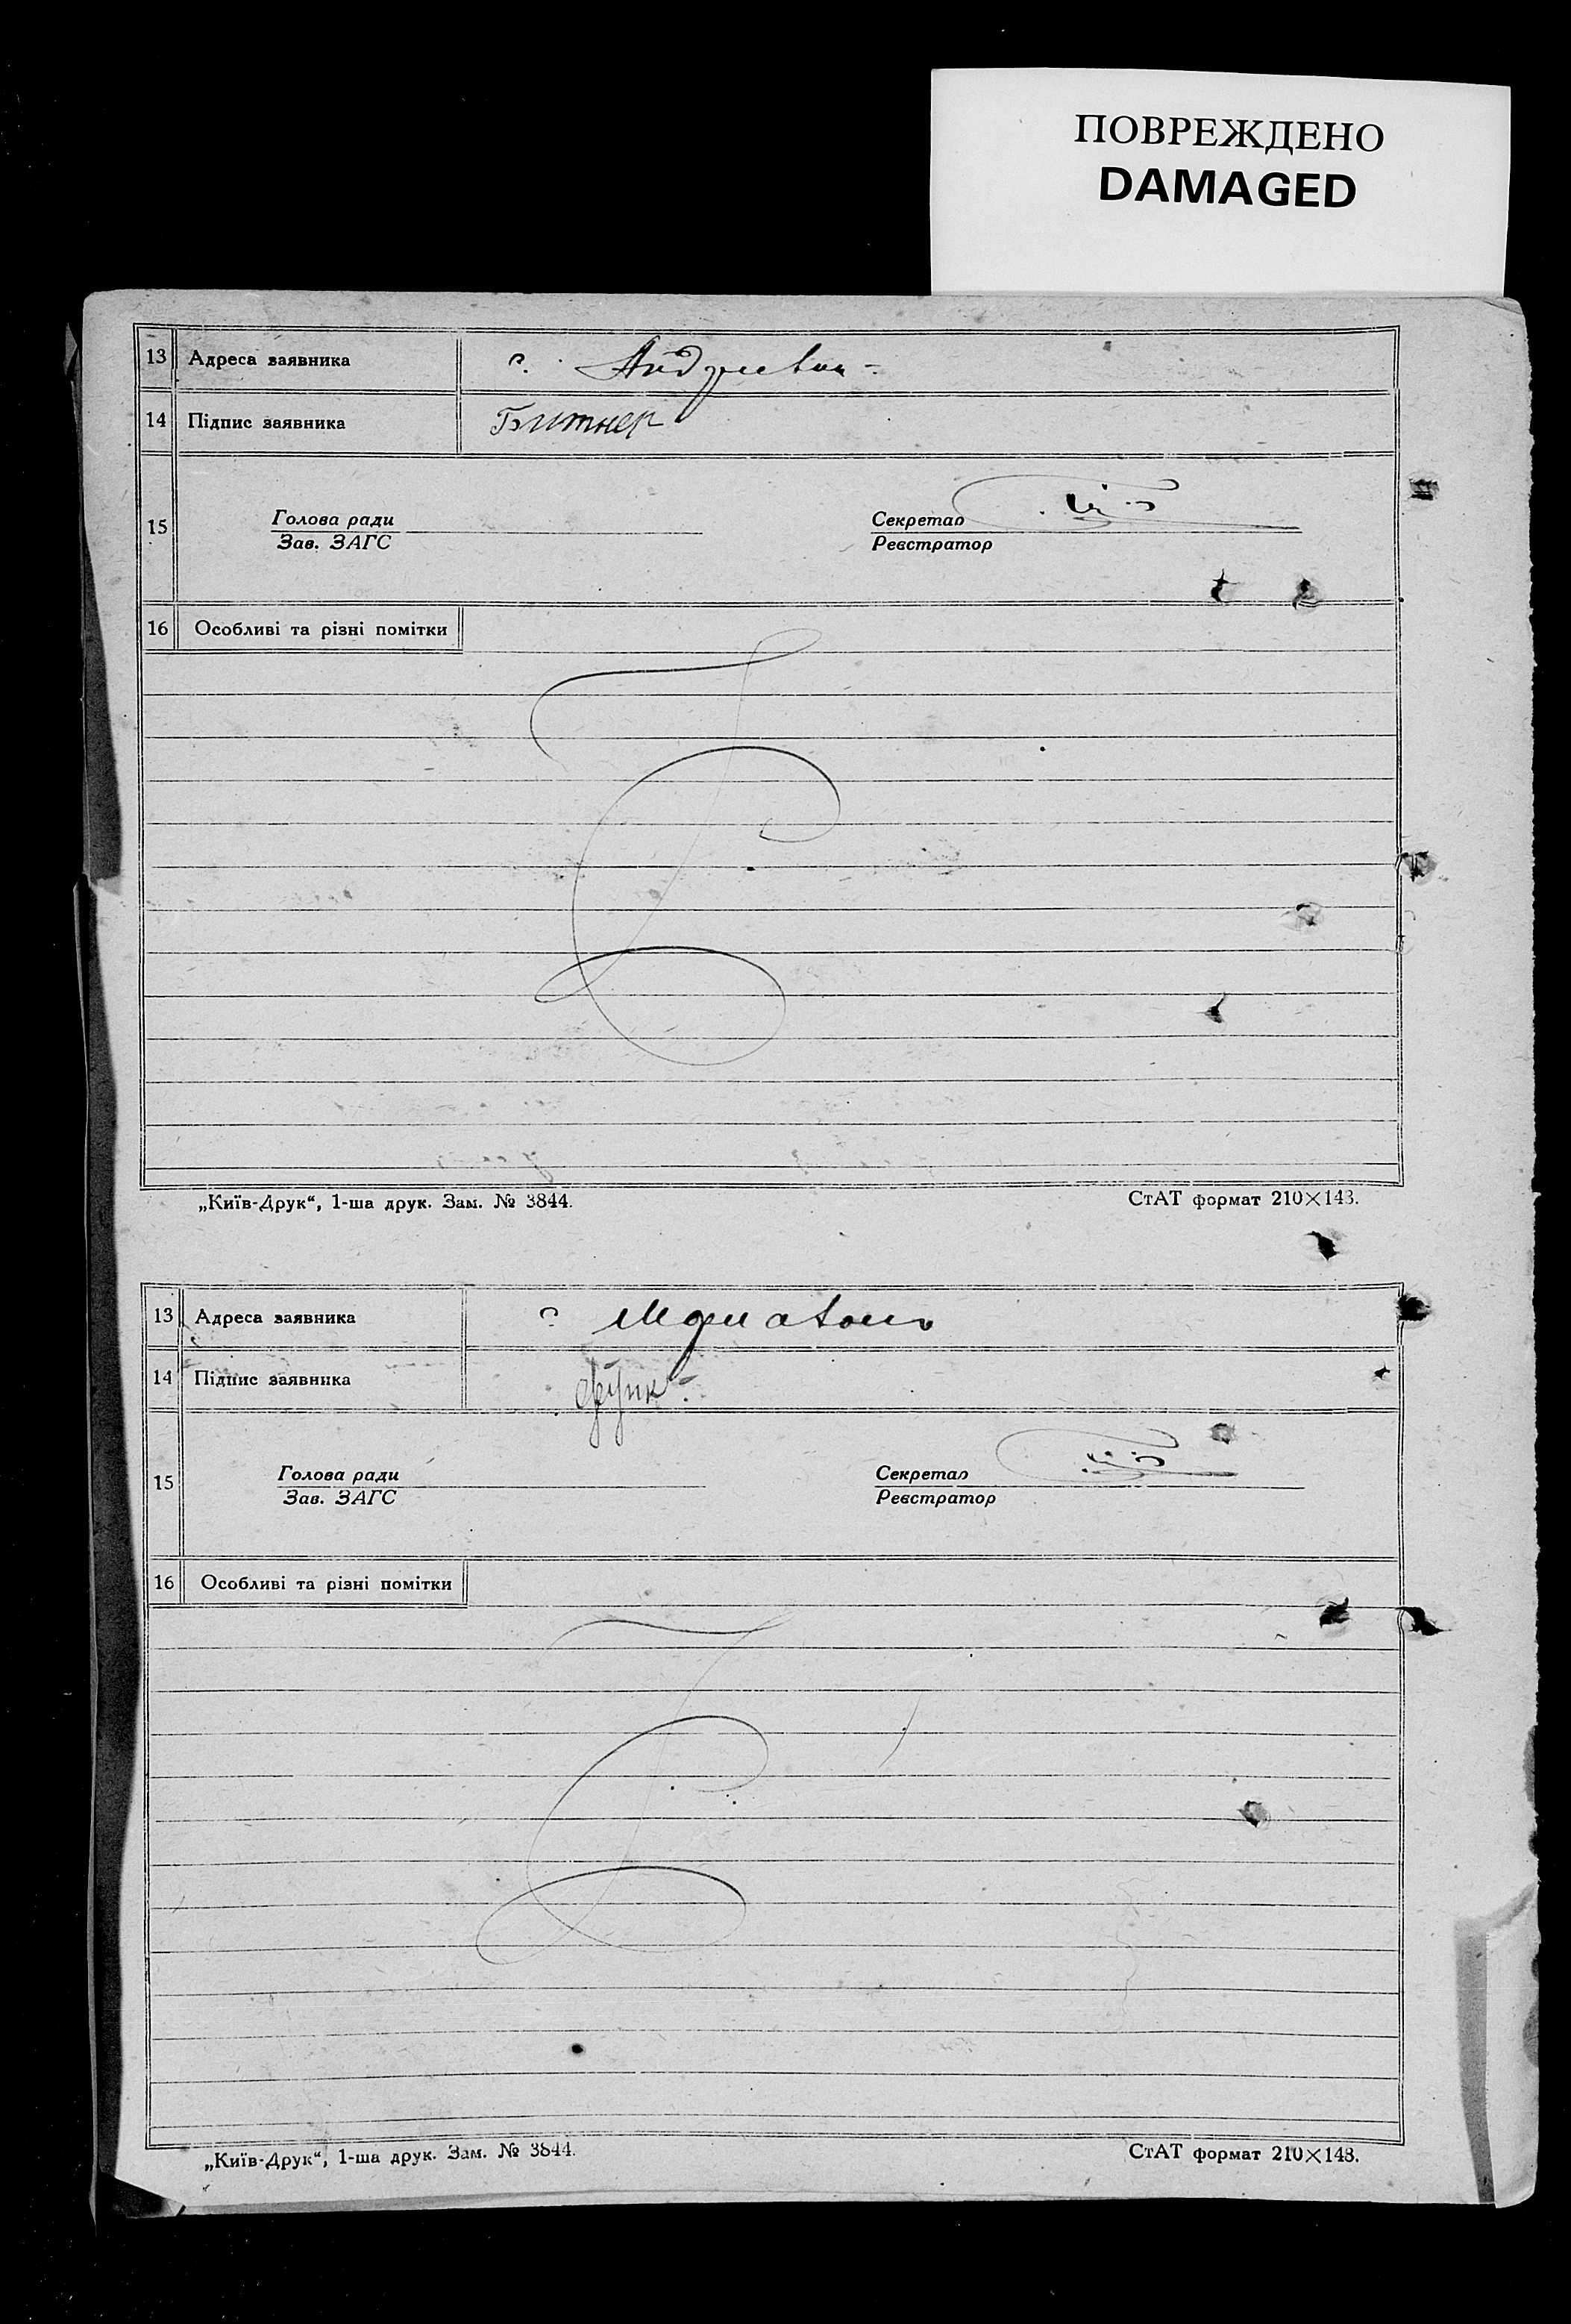 ПОВРЕЖДЕНО
DAMAGED
13 Адреса заявника с.
14 Підпис заявника Битнер
15 Голова ради Секретар
Зав. ЗАГС Реєстратор
16 Особливі та різні помітки
„Київ-Друк“, 1-ша друк. Зам. № 3844. СтАТ формат 210×148.
13 Адреса заявника с.
14 Підпис заявника
15 Голова ради Секретар
Зав. ЗАГС Реєстратор
16 Особливі та різні помітки
„Київ-Друк“, 1-ша друк. Зам. № 3844. СтАТ формат 210×148.